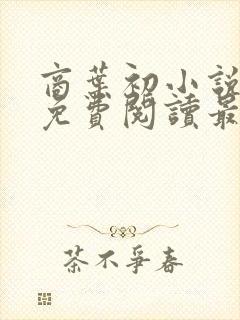 商葉初小說
免費閱讀最
茶不爭春